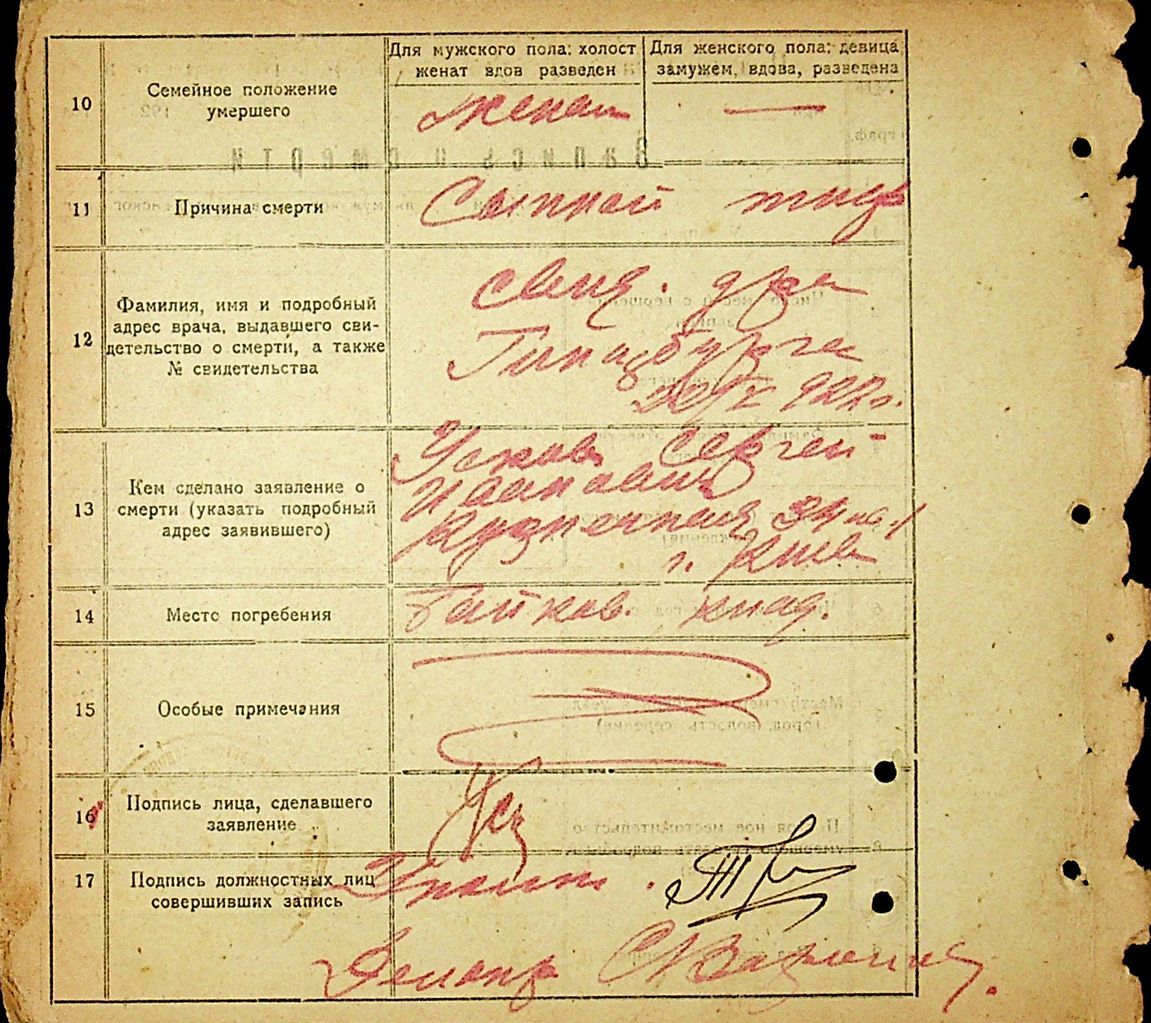 Для мужского пола: холост
женат вдов разведен
Для женского пола: девица
замужем, вдова, разведена
10
Семейное положение
умершего
женат
—
11
Причина смерти
Сыпной тиф
12
Фамилия, имя и подробный
адрес врача, выдавшего сви-
детельство о смерти, а также
№ свидетельства
свид. д-ра
Гинцбурга
922 г.
13
Кем сделано заявление о
смерти (указать подробный
адрес заявившего)
Усков Сергей
Иванович
Кузнечная
г. Киев
14
Место погребения
Байков. клад.
15
Особые примечания
16
Подпись лица, сделавшего
заявление
17
Подпись должностных лиц
совершивших запись
Делопр